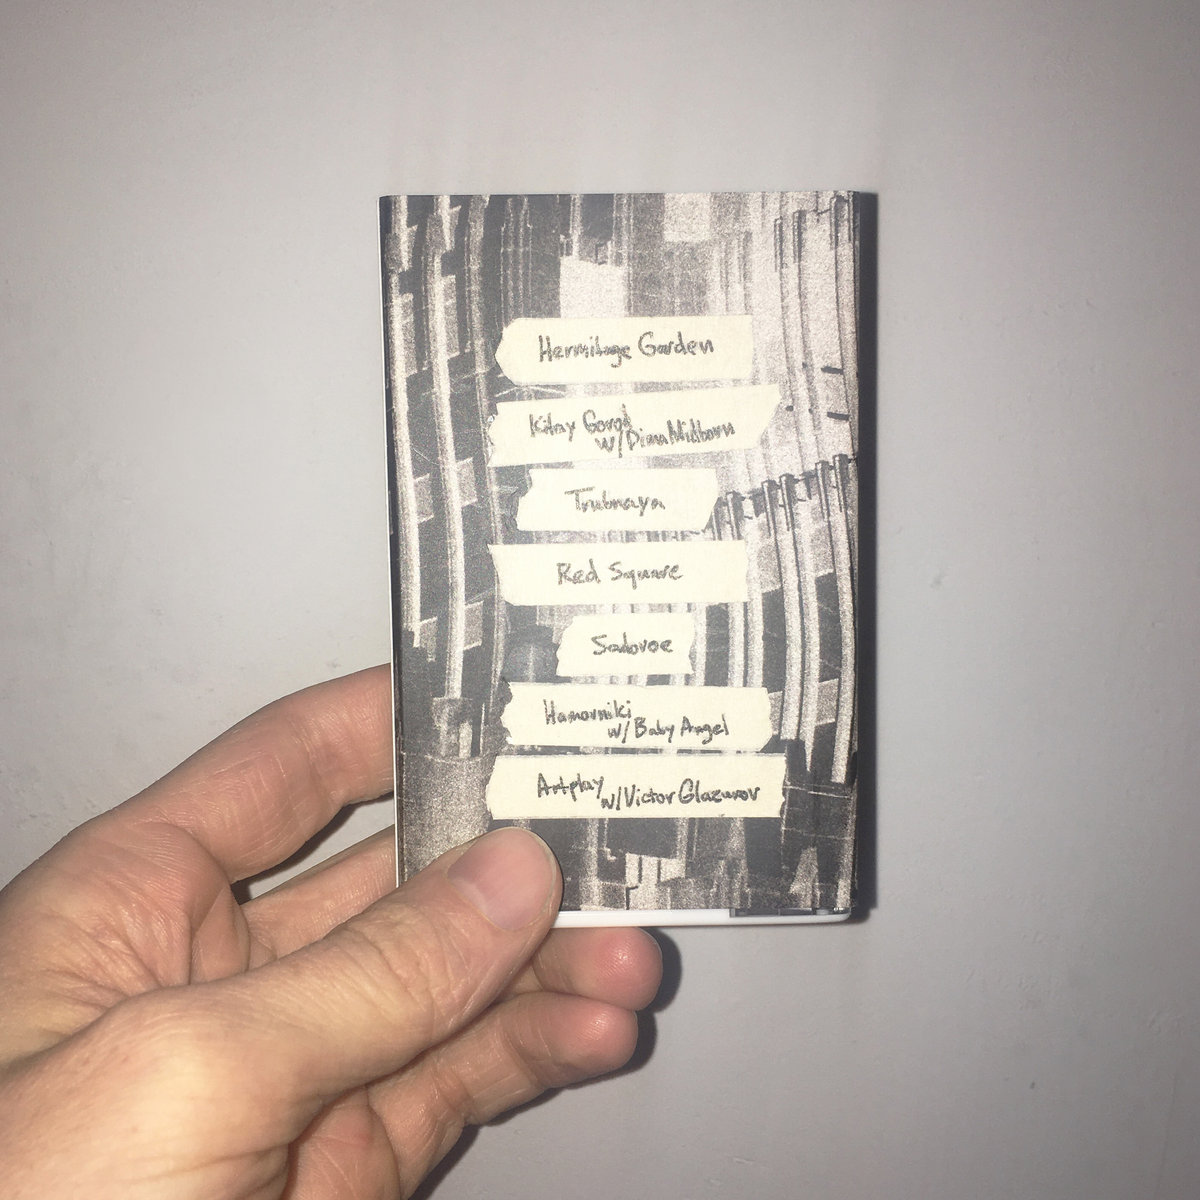 Hermitage Garden
Kitay Gorod
w/Dima Midborn
Trubnaya
Red Square
Sadovoe
Hamovniki
w/ Baby Angel
Artplay
w/Victor Glazunov